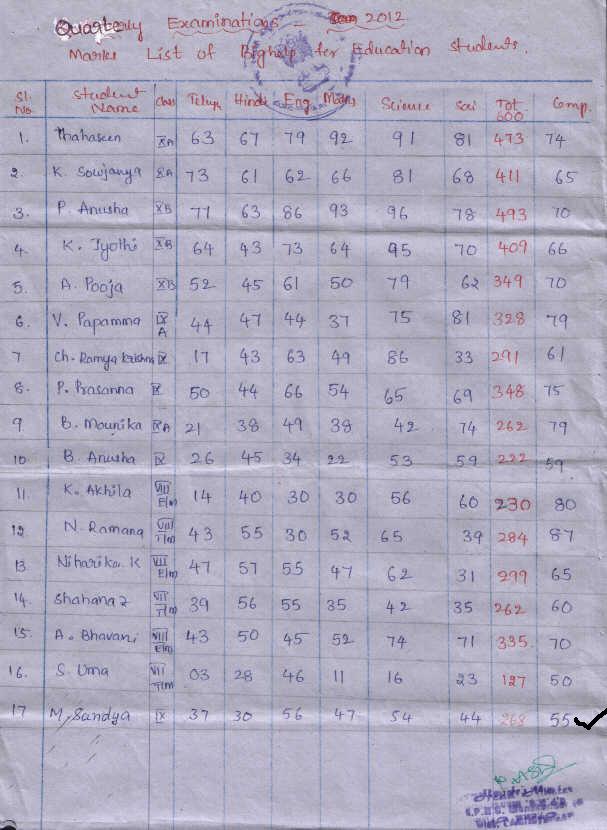 Quarterly Examinations - 2012
Marks List of Bighelp for Education Students.
Sl. No. Student Name Class Telugu Hindi Eng Maths Science Soi Tot 600 Comp.
1. Thahaseen XA 63 67 79 92 91 81 473 74
2. K. Sowjanya XA 73 61 62 66 81 68 411 65
3. P. Anusha XB 77 63 86 93 96 78 493 70
4. K. Jyothi XB 64 43 73 64 95 70 409 66
5. A. Pooja XB 52 45 61 50 79 62 349 70
6. V. Papamma IX A 44 47 44 37 75 81 328 79
7 Ch. Ramya Krishna IX 17 43 63 49 86 33 291 61
8. P. Prasanna IX 50 44 66 54 65 69 348 75
9 B. Mounika IXA 21 38 49 38 42 74 262 79
10 B. Anusha IX 26 45 34 22 53 59 222 59
11. K. Akhila VIII E/m 14 40 30 30 56 60 230 80
12 N. Ramana VIII T/m 43 55 30 52 65 39 284 87
13 Niharika. K VII E/m 47 57 55 47 62 31 299 65
14. Shahana 2 VII T/m 39 56 55 35 42 35 262 60
15. A. Bhavani VIII E/m 43 50 45 52 74 71 335 70
16. S. Uma VII T/m 03 28 46 11 16 23 127 50
17 M. Sandya IX 37 30 56 47 54 44 268 55